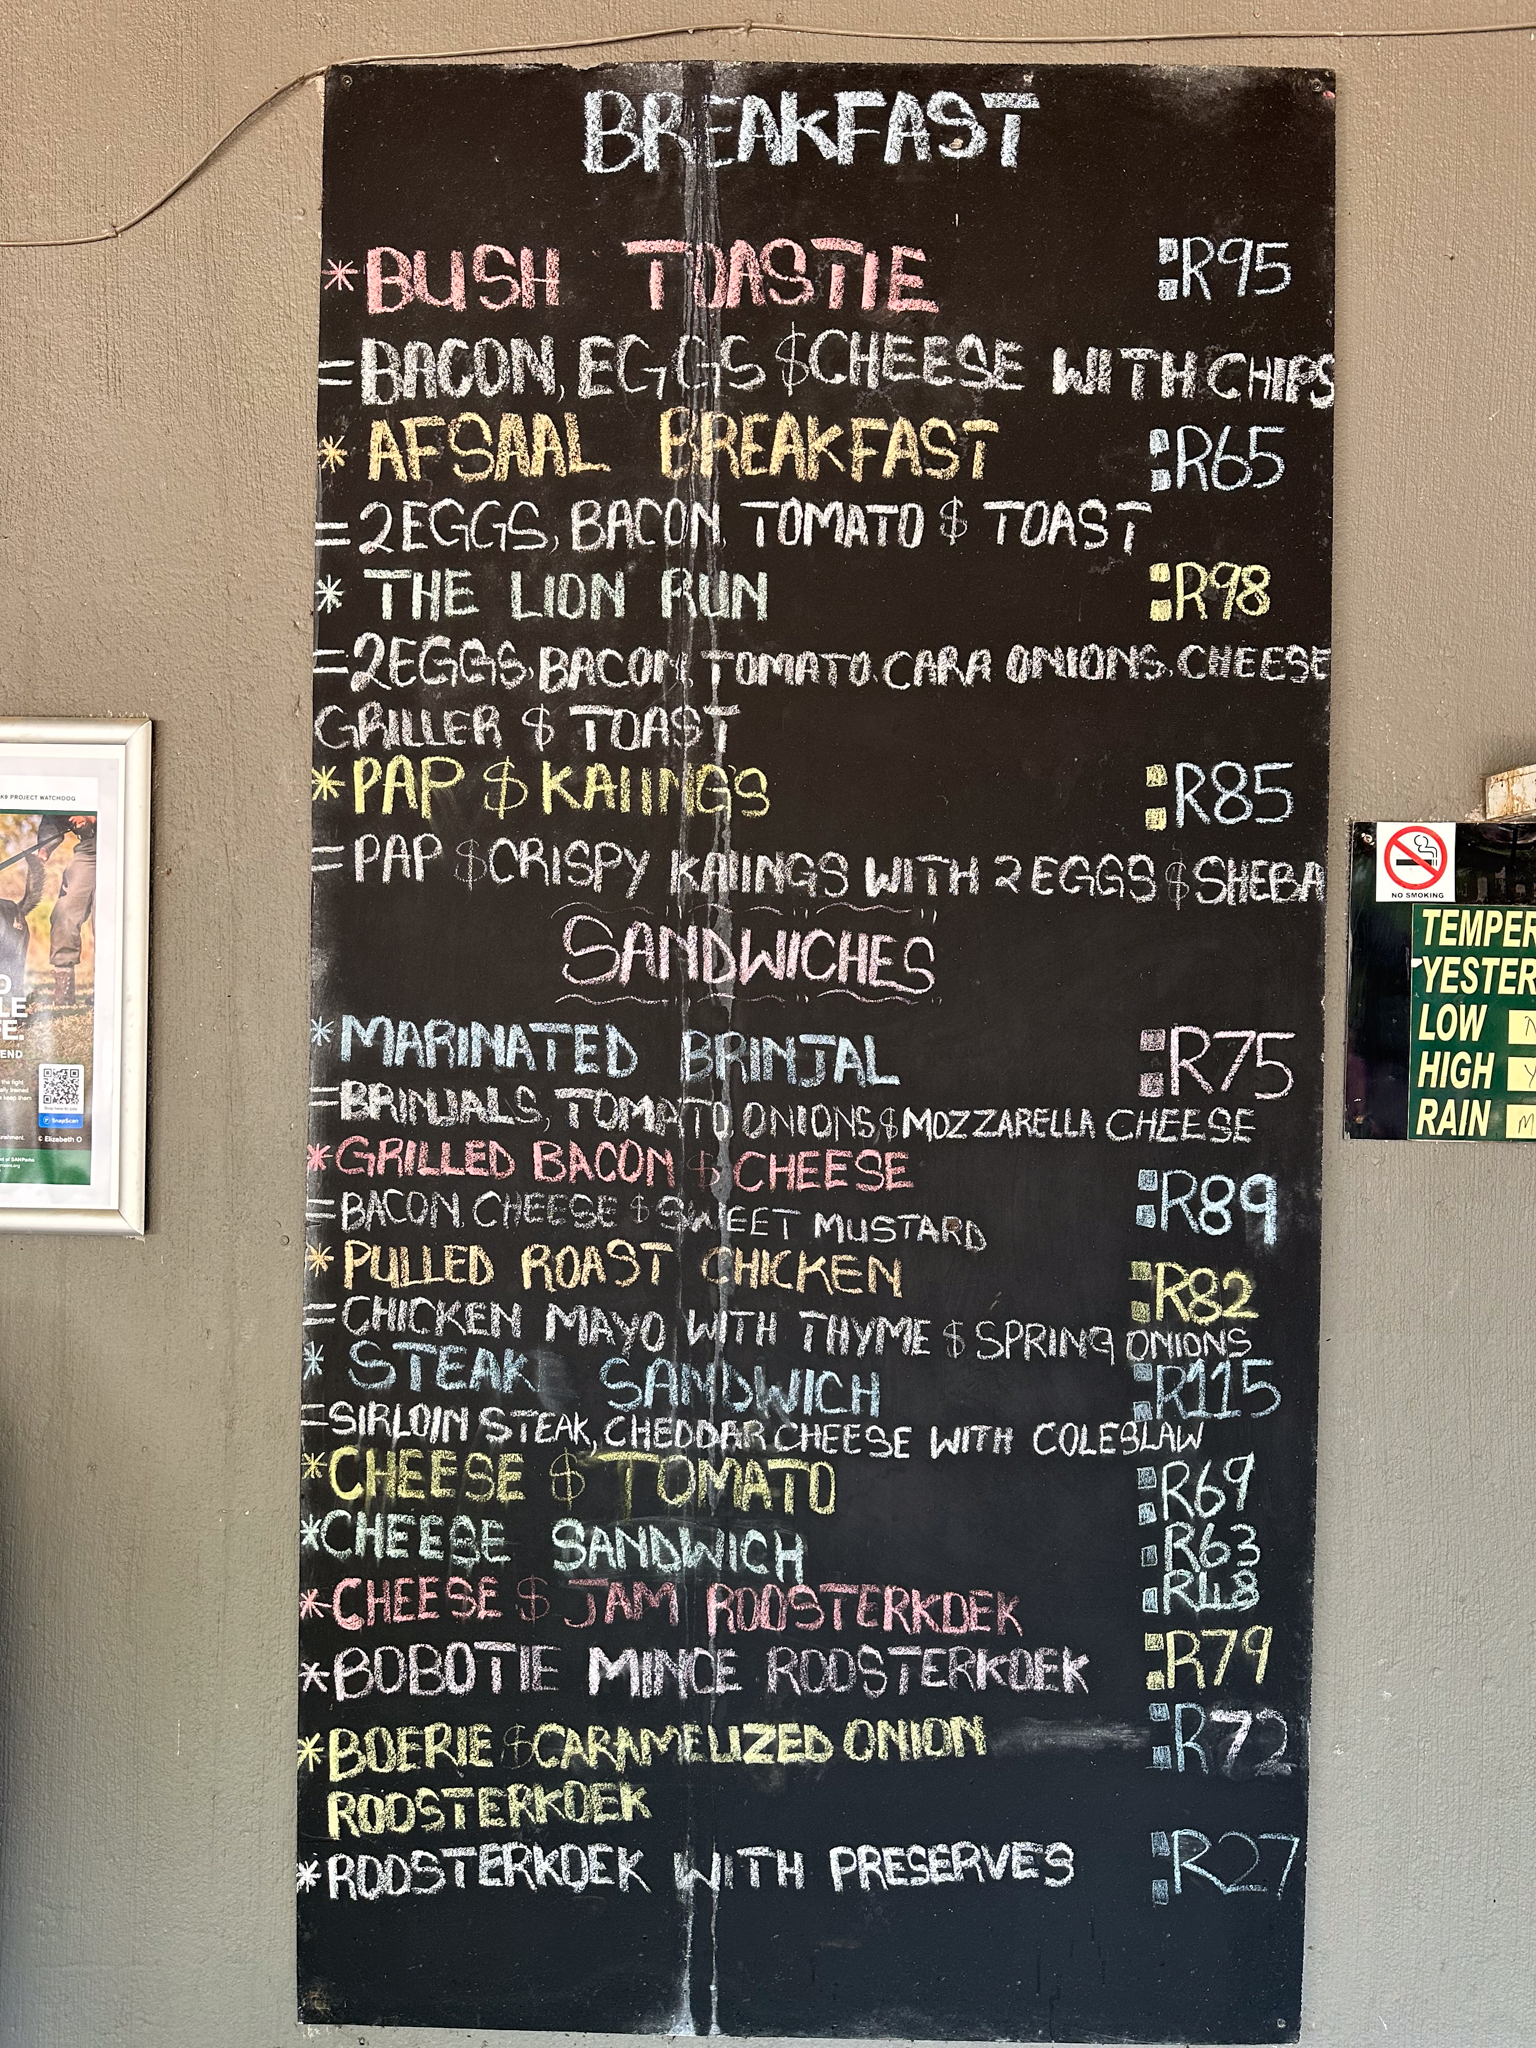 BREAKFAST
* BUSH TOASTIE :R95
= BACON, EGGS $ CHEESE WITH CHIPS
* AFSAAL BREAKFAST :R65
= 2 EGGS, BACON, TOMATO $ TOAST
* THE LION RUN :R98
= 2 EGGS, BACON, TOMATO, CARA ONIONS, CHEESE
GRILLER $ TOAST
* PAP $ KAIINGS :R85
= PAP $ CRISPY KAIINGS WITH 2 EGGS $ SHEBA
SANDWICHES
* MARINATED BRINJAL :R75
= BRINJALS, TOMATO, ONIONS $ MOZZARELLA CHEESE
* GRILLED BACON $ CHEESE :R89
= BACON, CHEESE $ SWEET MUSTARD
* PULLED ROAST CHICKEN :R82
= CHICKEN MAYO WITH THYME $ SPRING ONIONS
* STEAK SANDWICH :R115
= SIRLOIN STEAK, CHEDDAR CHEESE WITH COLESLAW
* CHEESE $ TOMATO :R69
* CHEESE SANDWICH :R63
* CHEESE $ JAM ROOSTERKOEK :R48
* BOBOTIE MINCE ROOSTERKOEK :R79
* BOERIE $ CARAMELIZED ONION :R72
ROOSTERKOEK
* ROOSTERKOEK WITH PRESERVES :R27
K9 PROJECT WATCHDOG
SnapScan
© Elizabeth O
NO SMOKING
TEMPER
YESTER
LOW
HIGH
RAIN